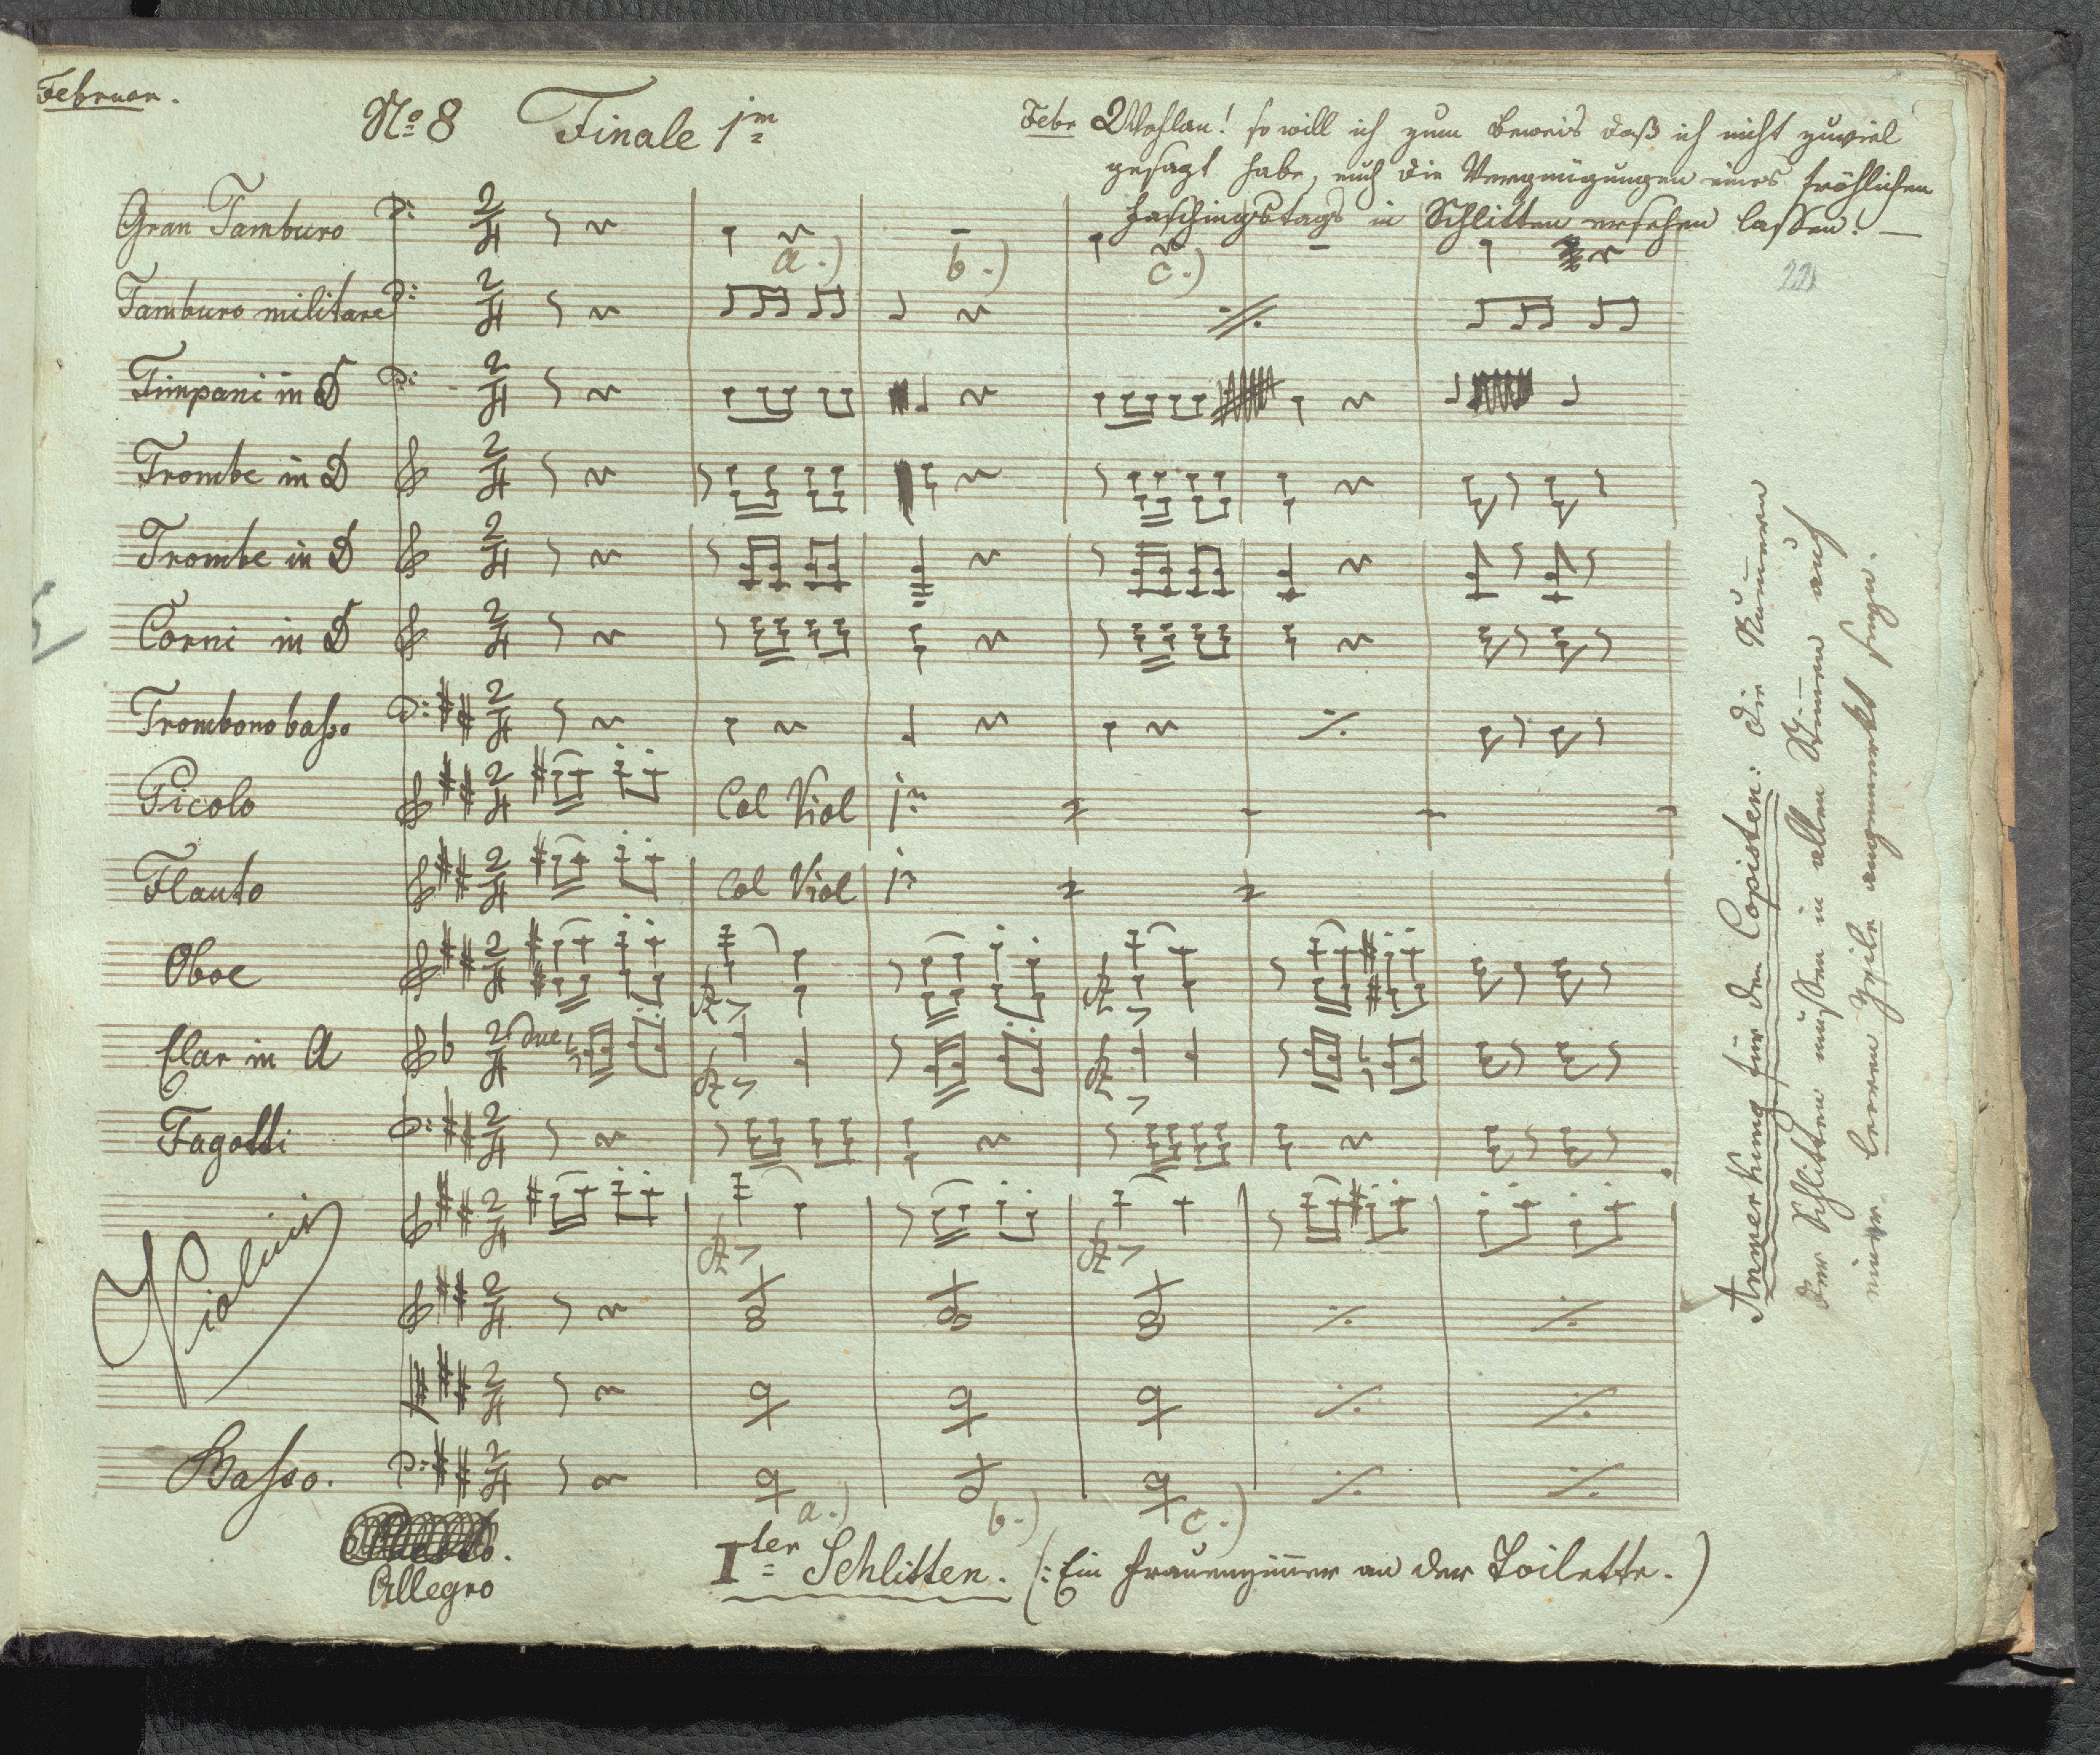 Februar.
No 8 Finale 1m
Febr Wohlan! so will ich zum Beweis daß ich nicht zuviel
gesagt habe, euch die Vergnügungen eines fröhlichen
Faschingstags in Schlitten ersehen lassen! —
221
Gran Tamburo
a.) b.) c.)
Tamburo militare
Timpani in D
Trombe in D
Trombe in D
Corni in D
Trombono basso
Picolo Col Viol 1m
Flauto Col Viol 1m
Oboe
Clar in A due
Fagotti
Violini
Basso.
a.) b.) c.)
Allegro
Iter Schlitten. (: Ein Frauenzimmer an der Toilette.)
Anmerkung für den Copisten: die Nummern
der Schlitten müssen in allen Stimmen auch
einer leeren Zeile angemerkt seyn.